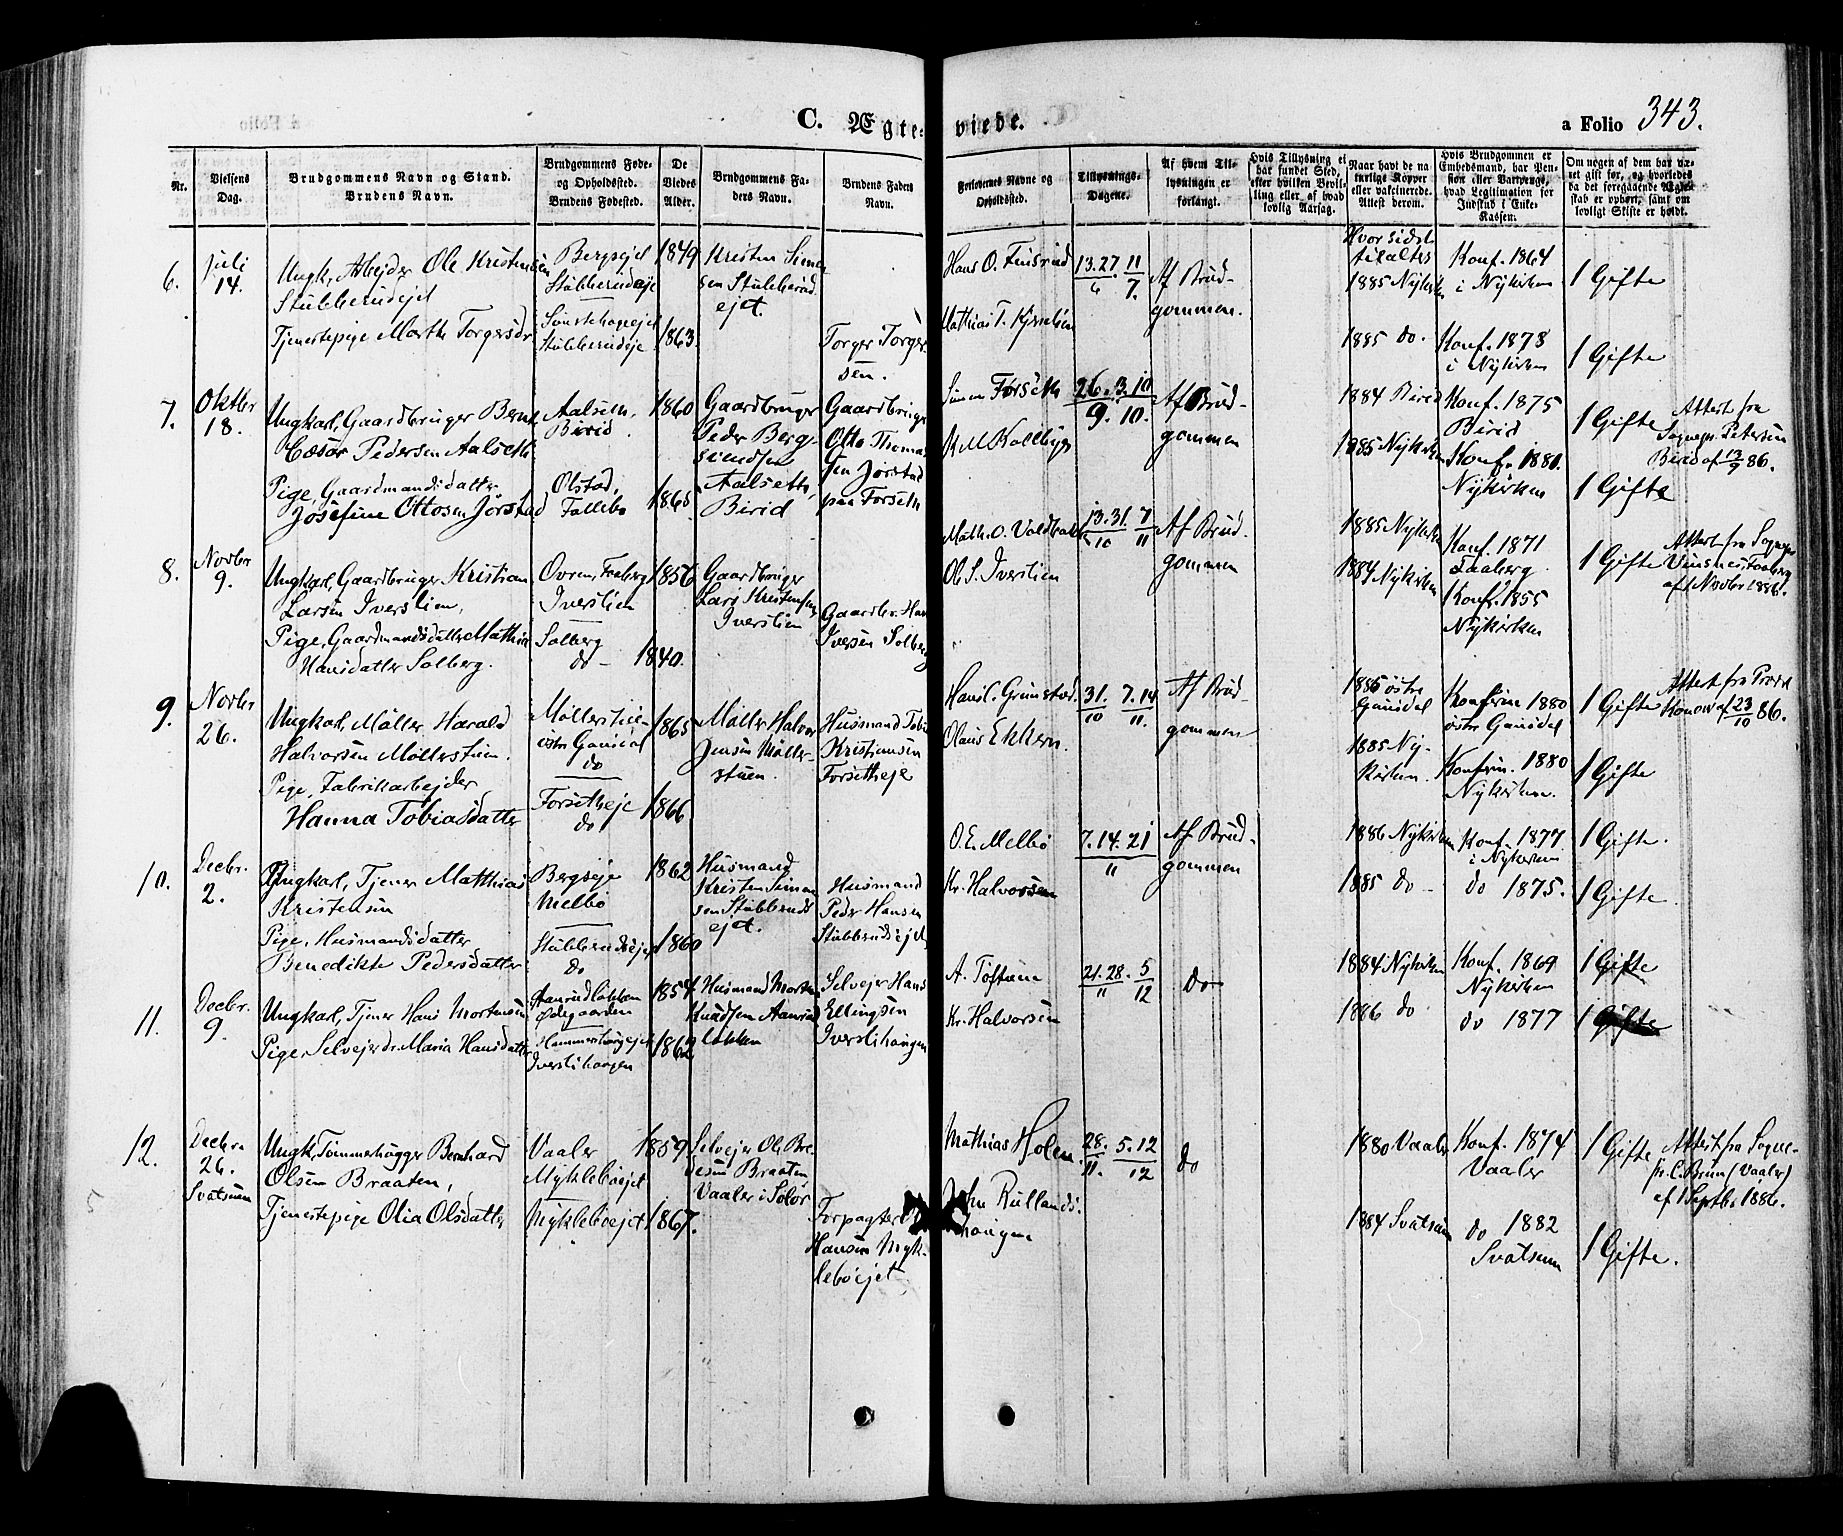 C. Ægteviede.
a Folio 343.
Nr.
Vielsens Dag.
Brudgommens Navn og Stand.
Brudens Navn.
Brudgommens Føde-
og Opholdssted.
Brudens Fødested.
De
Viedes
Alder.
Brudgommens Fa-
ders Navn.
Brudens Faders
Navn.
Forlovernes Navne og
Opholdssted.
Tillysnings-
Dagene.
Af hvem Til-
lysningen er
forlangt.
Hvis Tillysning ei
har fundet Sted,
efter hvilken Bevil-
ling eller af hvad
lovlig Aarsag.
Naar havt de na-
turlige Kopper
eller vakcinerede.
Attest derom.
Hvis Brudgommen er
Embedsmand, har Pen-
sion eller Vartpenge,
hvad Legitimation for
Indskud i Enke-
Kassen.
Om nogen af dem har væ-
ret gift før, og hvorledes
da det foregaaende Ægte-
skab er ophørt, samt om
lovligt Skifte er holdt.
6.
Juli
14.
Ungk, Arbejder Ole Kristensen
Stubberudejet
Tjenestepige Marthe Torgersdr
Bergsejet
Stubberudeje
Stubberudeje
1849
1863.
Kristen Simen
sen Stubberud
ejet.
Torger Torger
sen.
Hans O. Finsrud
Mathias T.
13.27/6 . 11/7.
Af Brud-
gommen.
Hvor sidst
tilaltes
1885 Nykirken
1885 do.
Konf. 1864
i Nykirken
Konf. 1878
i Nykirken
1 Gifte
1 Gifte
7.
Oktbr
18.
Ungkarl, Gaardbruger Bernt
Cæsar Pedersen Aalseth
Pige, Gaardmandsdatter
Josefine Ottosen Jørstad
Aalseth,
Birid
Olstad,
Follebo
1860
1865
Gaardbruger
Peder Berg-
sendsen
Aalseth,
Birid
Gaardbruger
Otto Thomas
sen Jørstad
paa Forseth
Simen Forseth
26/9 . 3.10/10.
Af Brud-
gommen
1884 Birid
1885 Nykirken
Konf. 1875
Birid
Konf. 1880.
Nykirken
1 Gifte
1 Gifte
Attest fra
Sognepr. Petersen
Birid af 13/9 86.
8.
Novbr
9.
Ungkarl, Gaardbruger Kristian
Larsen Iverslien,
Pige, Gaardmandsdatter Mathia
Hansdatter Solberg.
Ovren, Faaberg
Iverslien
Solberg
do -
1856
1840.
Gaardbruger
Lars Kristensen
Iverslien
Gaardbr. Hans
Iversen Solberg
Math. O. Voldbakk
Ol S. Iverslien
13.31/10 7/11
Af Brud-
gommen
1885 Nykirken
1884 Nykirken
Konf. 1871
Faaberg.
Konf. 1855
Nykirken
1 Gifte
Attest fra Sognepr
Vinsnes Faaberg
af 1 Novbr 1886.
9.
Novbr
26.
Ungkarl, Møller Harald
Halvorsen Møllerstuen.
Pige, Fabrikarbejder
Hanna Tobiasdatter
Møllerstue-
østre Gausdal
do
Forsetheje
do
1865
1866
Møller Halvor
Jensen Møller-
stuen.
Husmand Tobias
Kristiansen
Forsetheje
Hans L. Grimstad.
Olaus Ekkern.
31/10 7.14/11.
Af Brud-
gommen
1885 østre
Gausdal
1885 Ny-
kirken.
Konfirm 1880
østre Gausdal
Konfirm. 1880
Nykirken.
1 Gifte
1 Gifte
Attest fra Provst
Konow af 23/10 86.
10.
Decbr.
2.
Ungkarl, Tjener Matthias
Kristensen
Pige, Husmandsdatter
Benedikte Pedersdatter
Bergseje
Melbö
Stubberudsejet
do
1862
1860
Husmand
Kristen Simen
sen Stubberuds
ejet.
Husmand
Peder Hansen
Stubberudsejet
O. E. Melbö
Kr. Halvorsen
7.14.21/11
Af Brud-
gommen
1886 Nykirken
1885 do -
Konf. 1877.
i Nykirken
do 1875.
1 Gifte.
1 Gifte
11.
Decbr.
9.
Ungkarl, Tjener Hans Mortensen
Pige Selvejerdr. Maria Hansdatter
Aanrudløkken
Ødegaarden
Hammershougejet
Iverslihaugen
1854
1862
Husmand Morten
Knudsen Aanrud
løkken
Selvejer Hans
Ellingsen
Iverslihaugen
A. Toftum
Kr. Halvorsen
21.28/11 . 5/12
do
1884 Nykirken
1886 do
Konf. 1869
Nykirken
do 1877
1 Gifte
1 Gifte
12.
Decbr
26.
Svatsum
Ungk, Tømmerhugger Bernhard
Olsen Braaten,
Tjenestepige Olia Olsdatter
Vaaler
Mykleböejet
Mykleböejet
1859
1867.
Selvejer Ole Bre
desen Braaten
Vaaler i Solør
Forpagter O
Hansen Myk-
leböejet
Mathias Holen
Rullands
haugen
28/11. 5.12/12
do
1880 Vaaler
1884 Svatsum
Konf. 1874
Vaaler
do 1882
Svatsum
1 Gifte
1 Gifte.
Attest fra Sogne-
pr. C. Brun (Vaaler)
af 1 Septbr 1886.